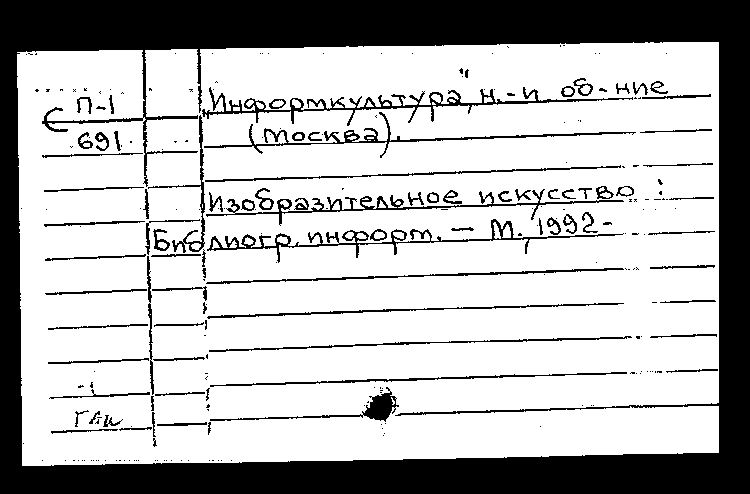 П-1
С
691
"Информкультура", н.-и об-ние
(Москва).
Изобразительное искусство :
Библиогр. информ. — М., 1992-
-1